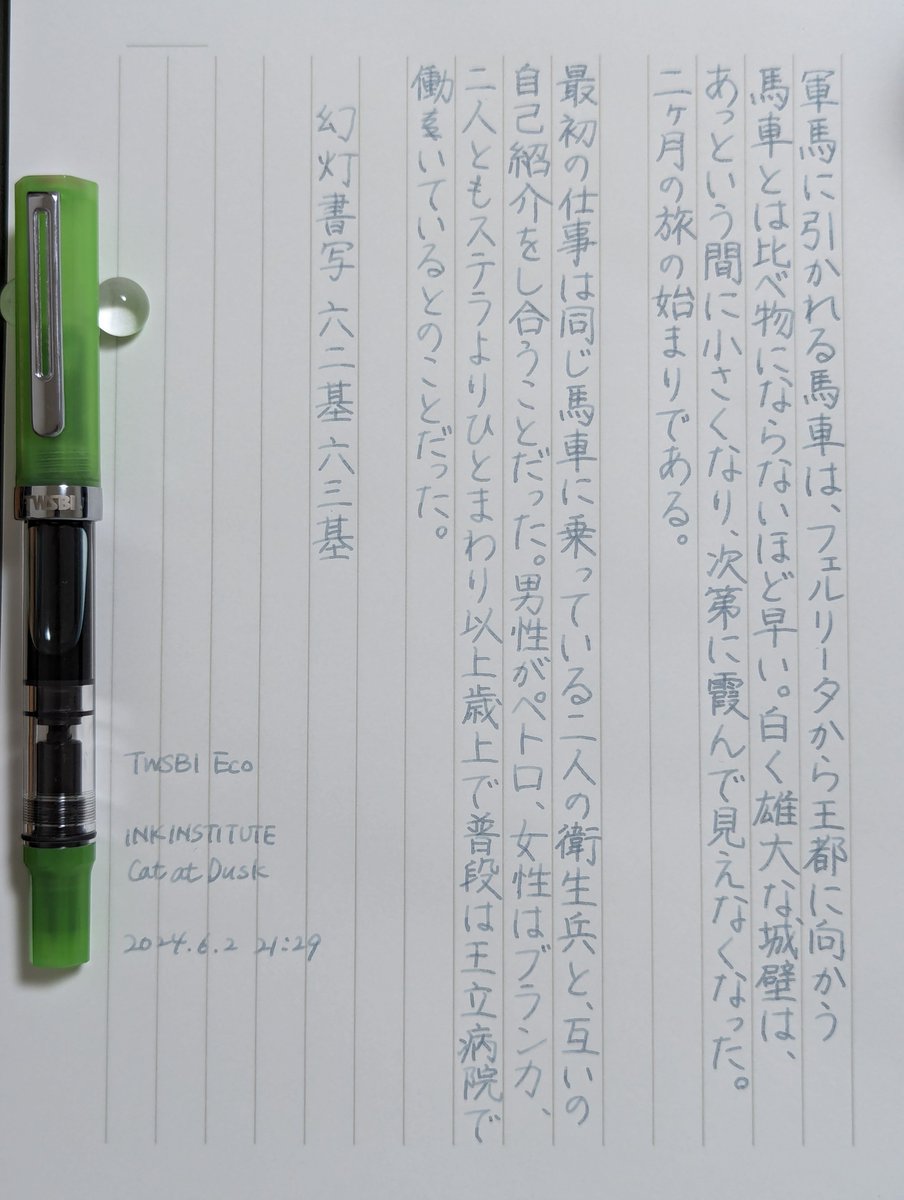 軍馬に引かれる馬車は、フェルリータから王都に向かう
馬車とは比べ物にならないほど早い。白く雄大な城壁は、
あっという間に小さくなり、次第に霞んで見えなくなった。
二ヶ月の旅の始まりである。
最初の仕事は同じ馬車に乗っている二人の衛生兵と、互いの
自己紹介をし合うことだった。男性がペトロ、女性はブランカ、
二人ともステラよりひとまわり以上歳上で普段は王立病院で
働いているとのことだった。
幻灯書写 六二基 六三基
TWSBI Eco
INKINSTITUTE
Cat at Dusk
2024.6.2 21:29
TWSBI